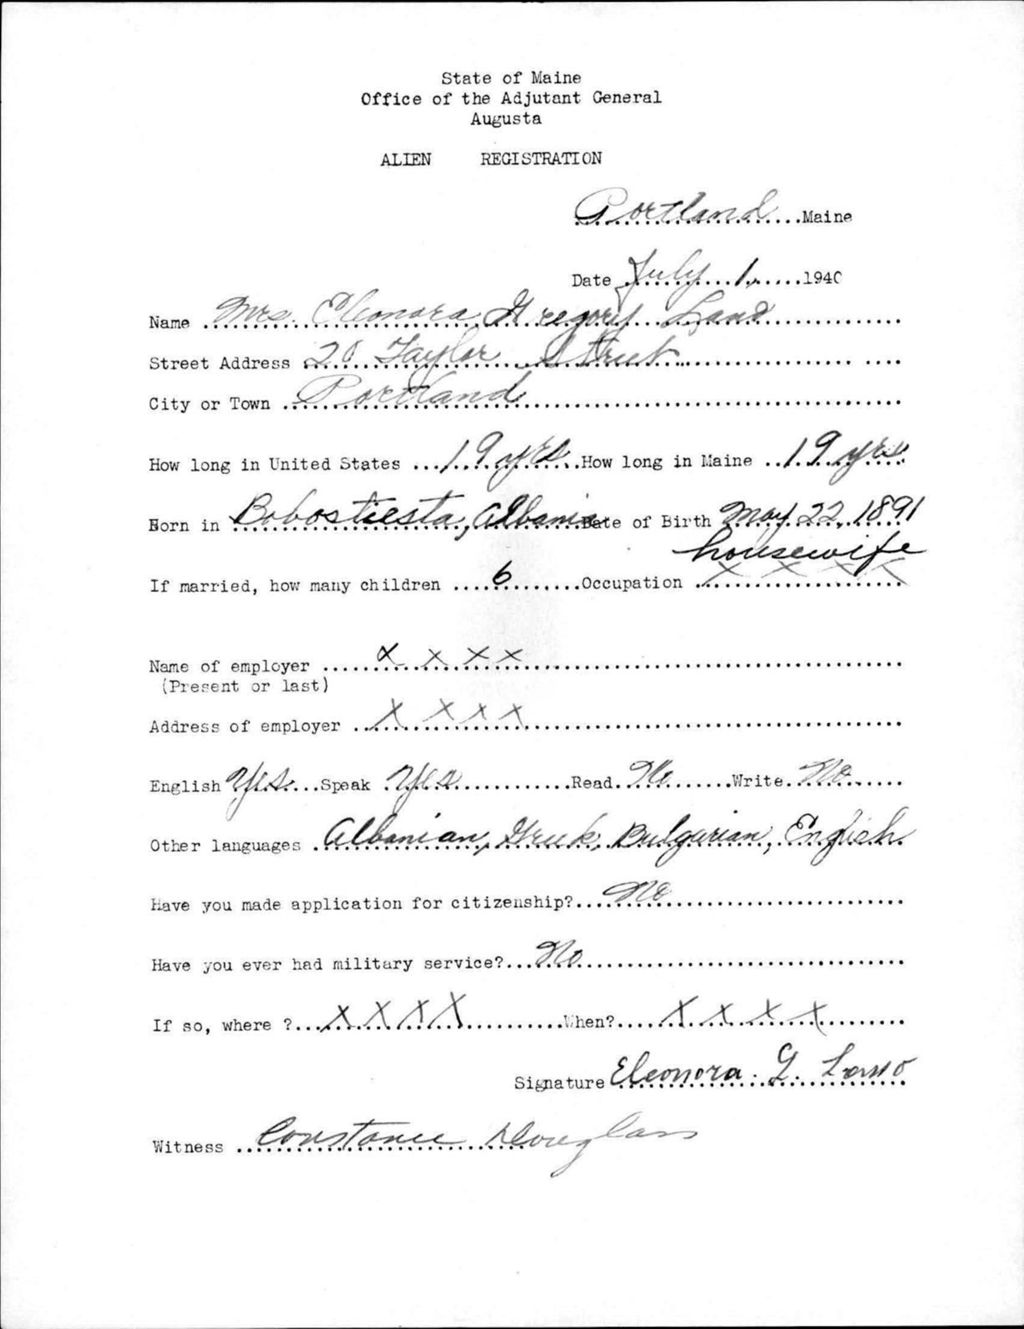 State of Maine
Office of the Adjutant General
Augusta
ALIEN REGISTRATION
Portland Maine
Date July 1, 1940
Name Mrs. Eleonora Gregory
Street Address 20 Taylor Street
City or Town Portland
How long in United States 19 yrs. How long in Maine 19 yrs
Born in Bobostiesta, Albania Date of Birth May 22, 1891
housewife
If married, how many children 6 Occupation x x x x
Name of employer x x x x
(Present or last)
Address of employer x x x x
English Yes Speak Yes Read No Write No
Other languages Albanian, Greek, Bulgarian, English
Have you made application for citizenship? No
Have you ever had military service? No
If so, where ? x x x x When? x x x x
Signature Eleonora G.
Witness Constance Douglass